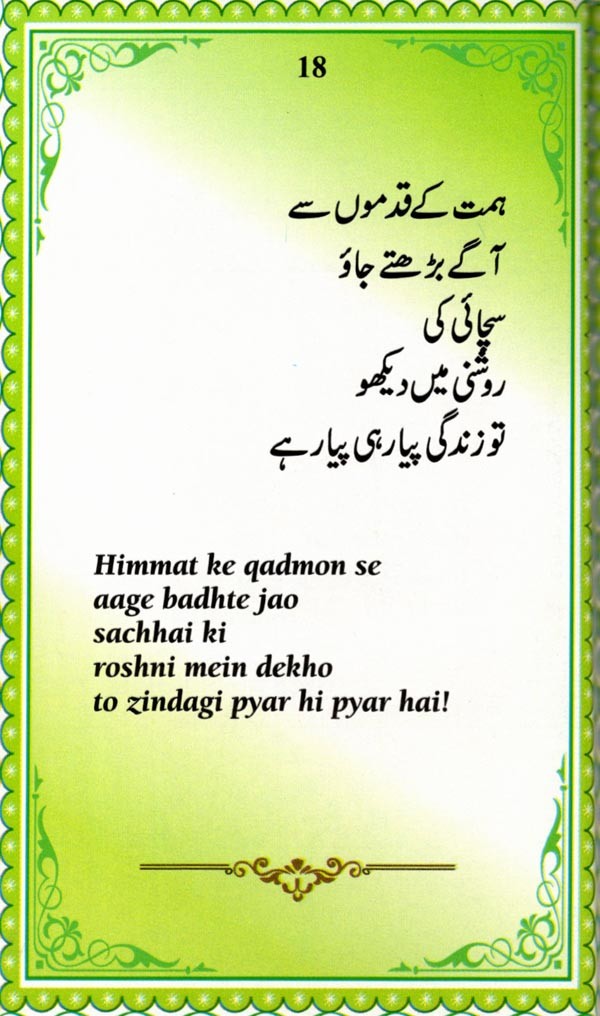 18
ہمت کے قدموں سے
آگے بڑھتے جاؤ
سچائی کی
روشنی میں دیکھو
تو زندگی پیار ہی پیار ہے
Himmat ke qadmon se
aage badhte jao
sachhai ki
roshni mein dekho
to zindagi pyar hi pyar hai!